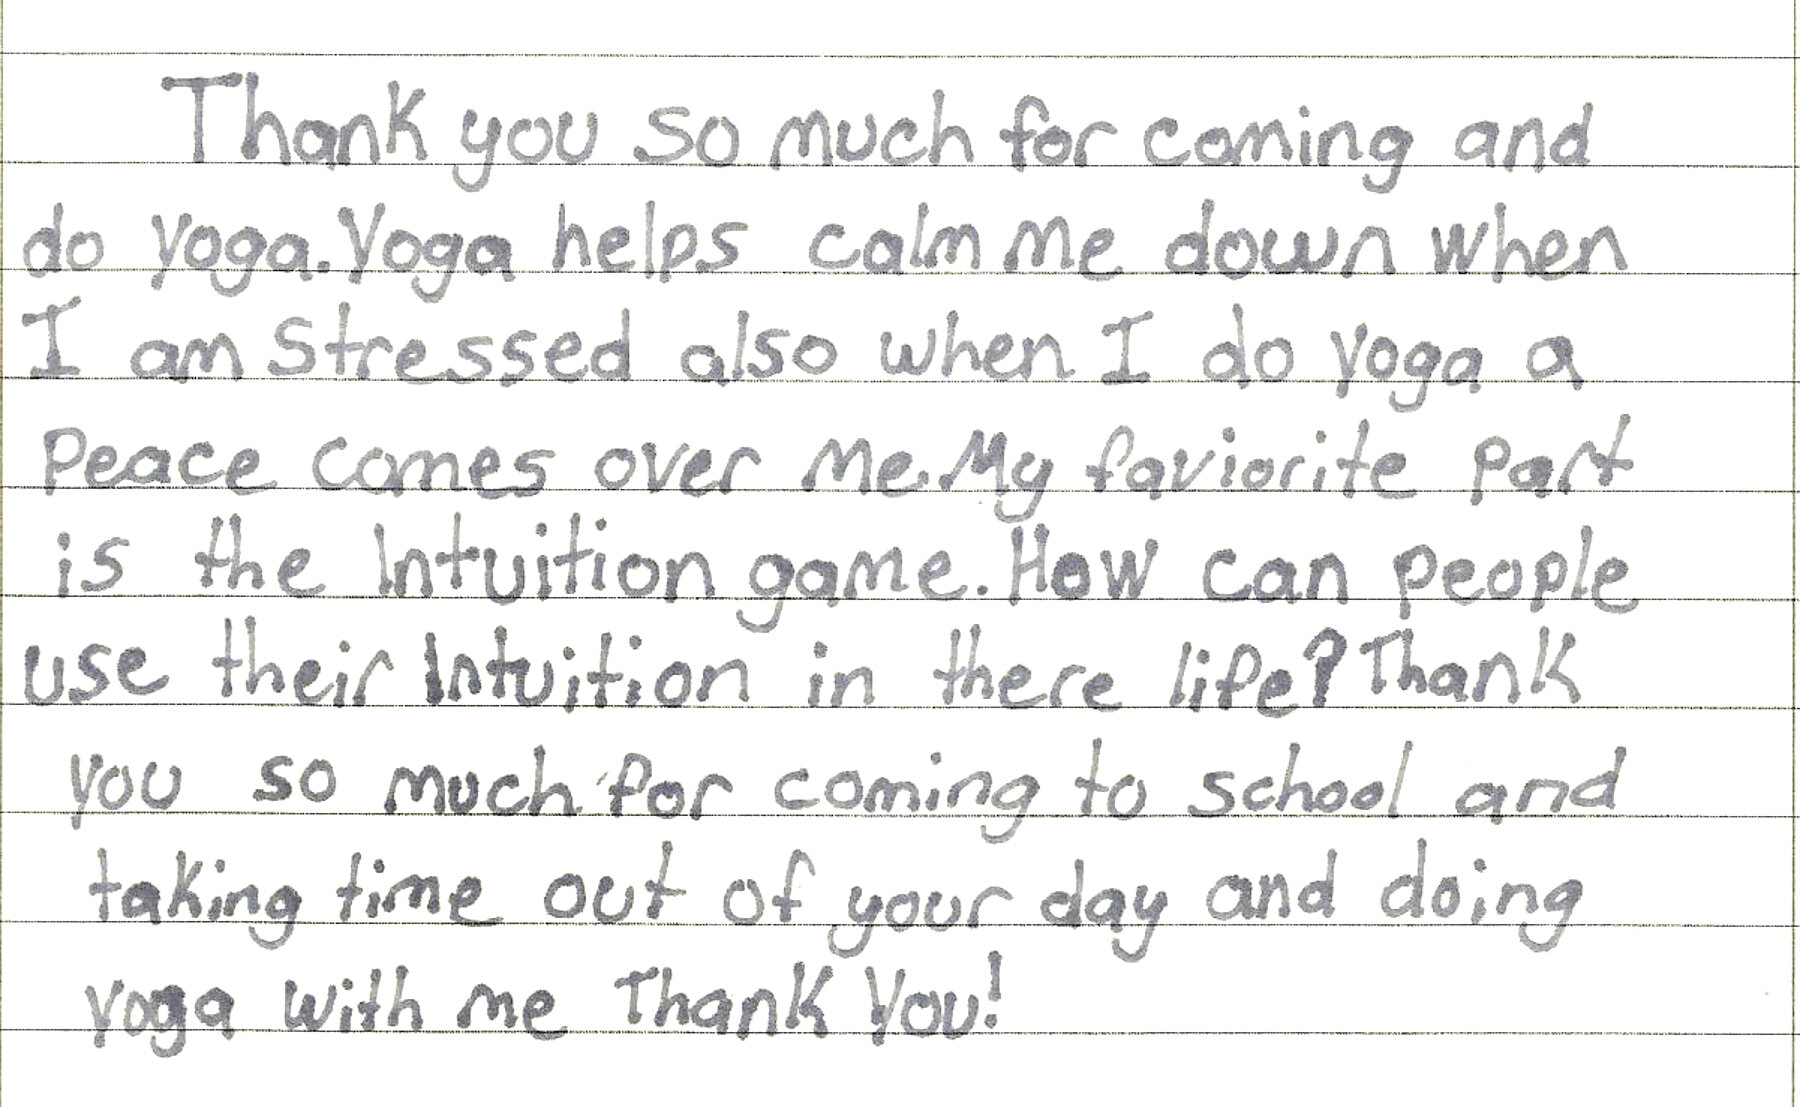 Thank you so much for coming and
do yoga. Yoga helps calm me down when
I am stressed also when I do yoga a
peace comes over me. My faviorite part
is the Intuition game. How can people
use their Intuition in there life? Thank
you so much for coming to school and
taking time out of your day and doing
yoga with me Thank You!